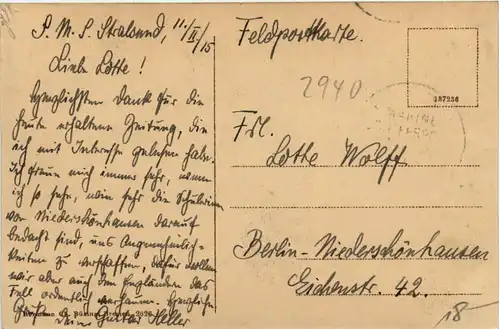 S. M. S. Stralsund, 11./II./15
Liebe Lotte!
Herzlichsten Dank für die
heute erhaltene Zeitung, die
ich mit Interesse gelesen habe.
Ich freue mich immer sehr, wenn
ich so sehe, wie sehr die Schulen
von Niederschönhausen darauf
bedacht sind, uns Angenehmlich-
keiten zu verschaffen, dafür wollen
wir aber auch den Engländern das
Fell ordentlich verhauen. Herzliche
Grüße Dein Gustav Heller
Feldpostkarte.
2940
387236
MARINE
Frl.
Lotte Wolff
Berlin-Niederschönhausen
Eichenstr. 42.
18-